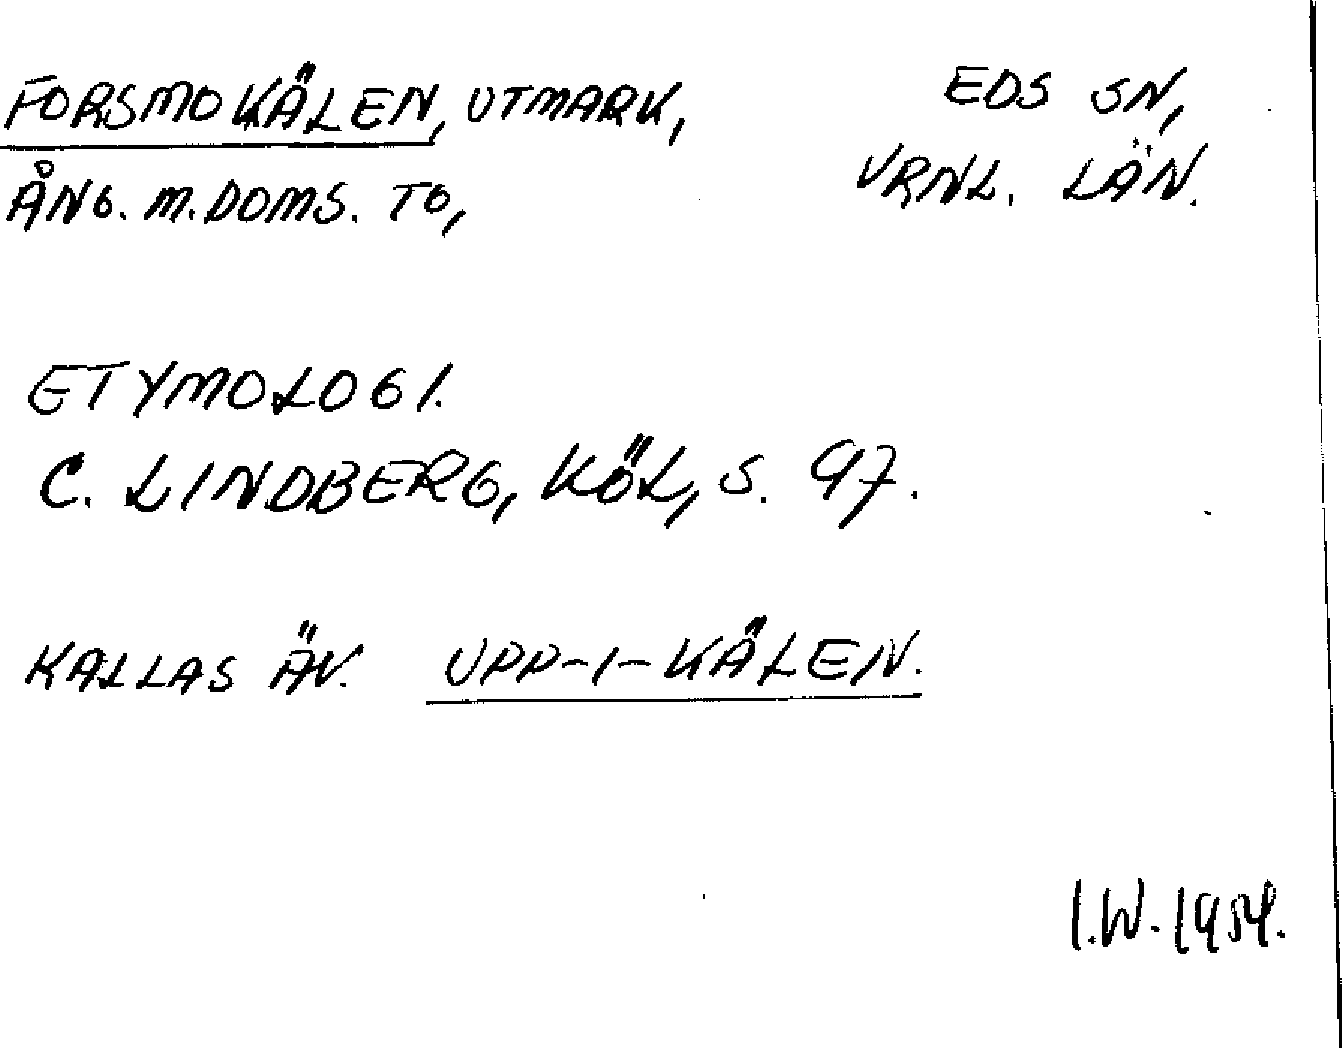 FORSMOKÄLEN, UTMARK,
EDS SN,
ÅNG. M. DOMS. TG,
VRNL. LÄN.
ETYMOLOGI.
C. LINDBERG, KÖL, S. 97.
KALLAS ÄV. UPP-I-KÄLEN.
I.W. 1954.